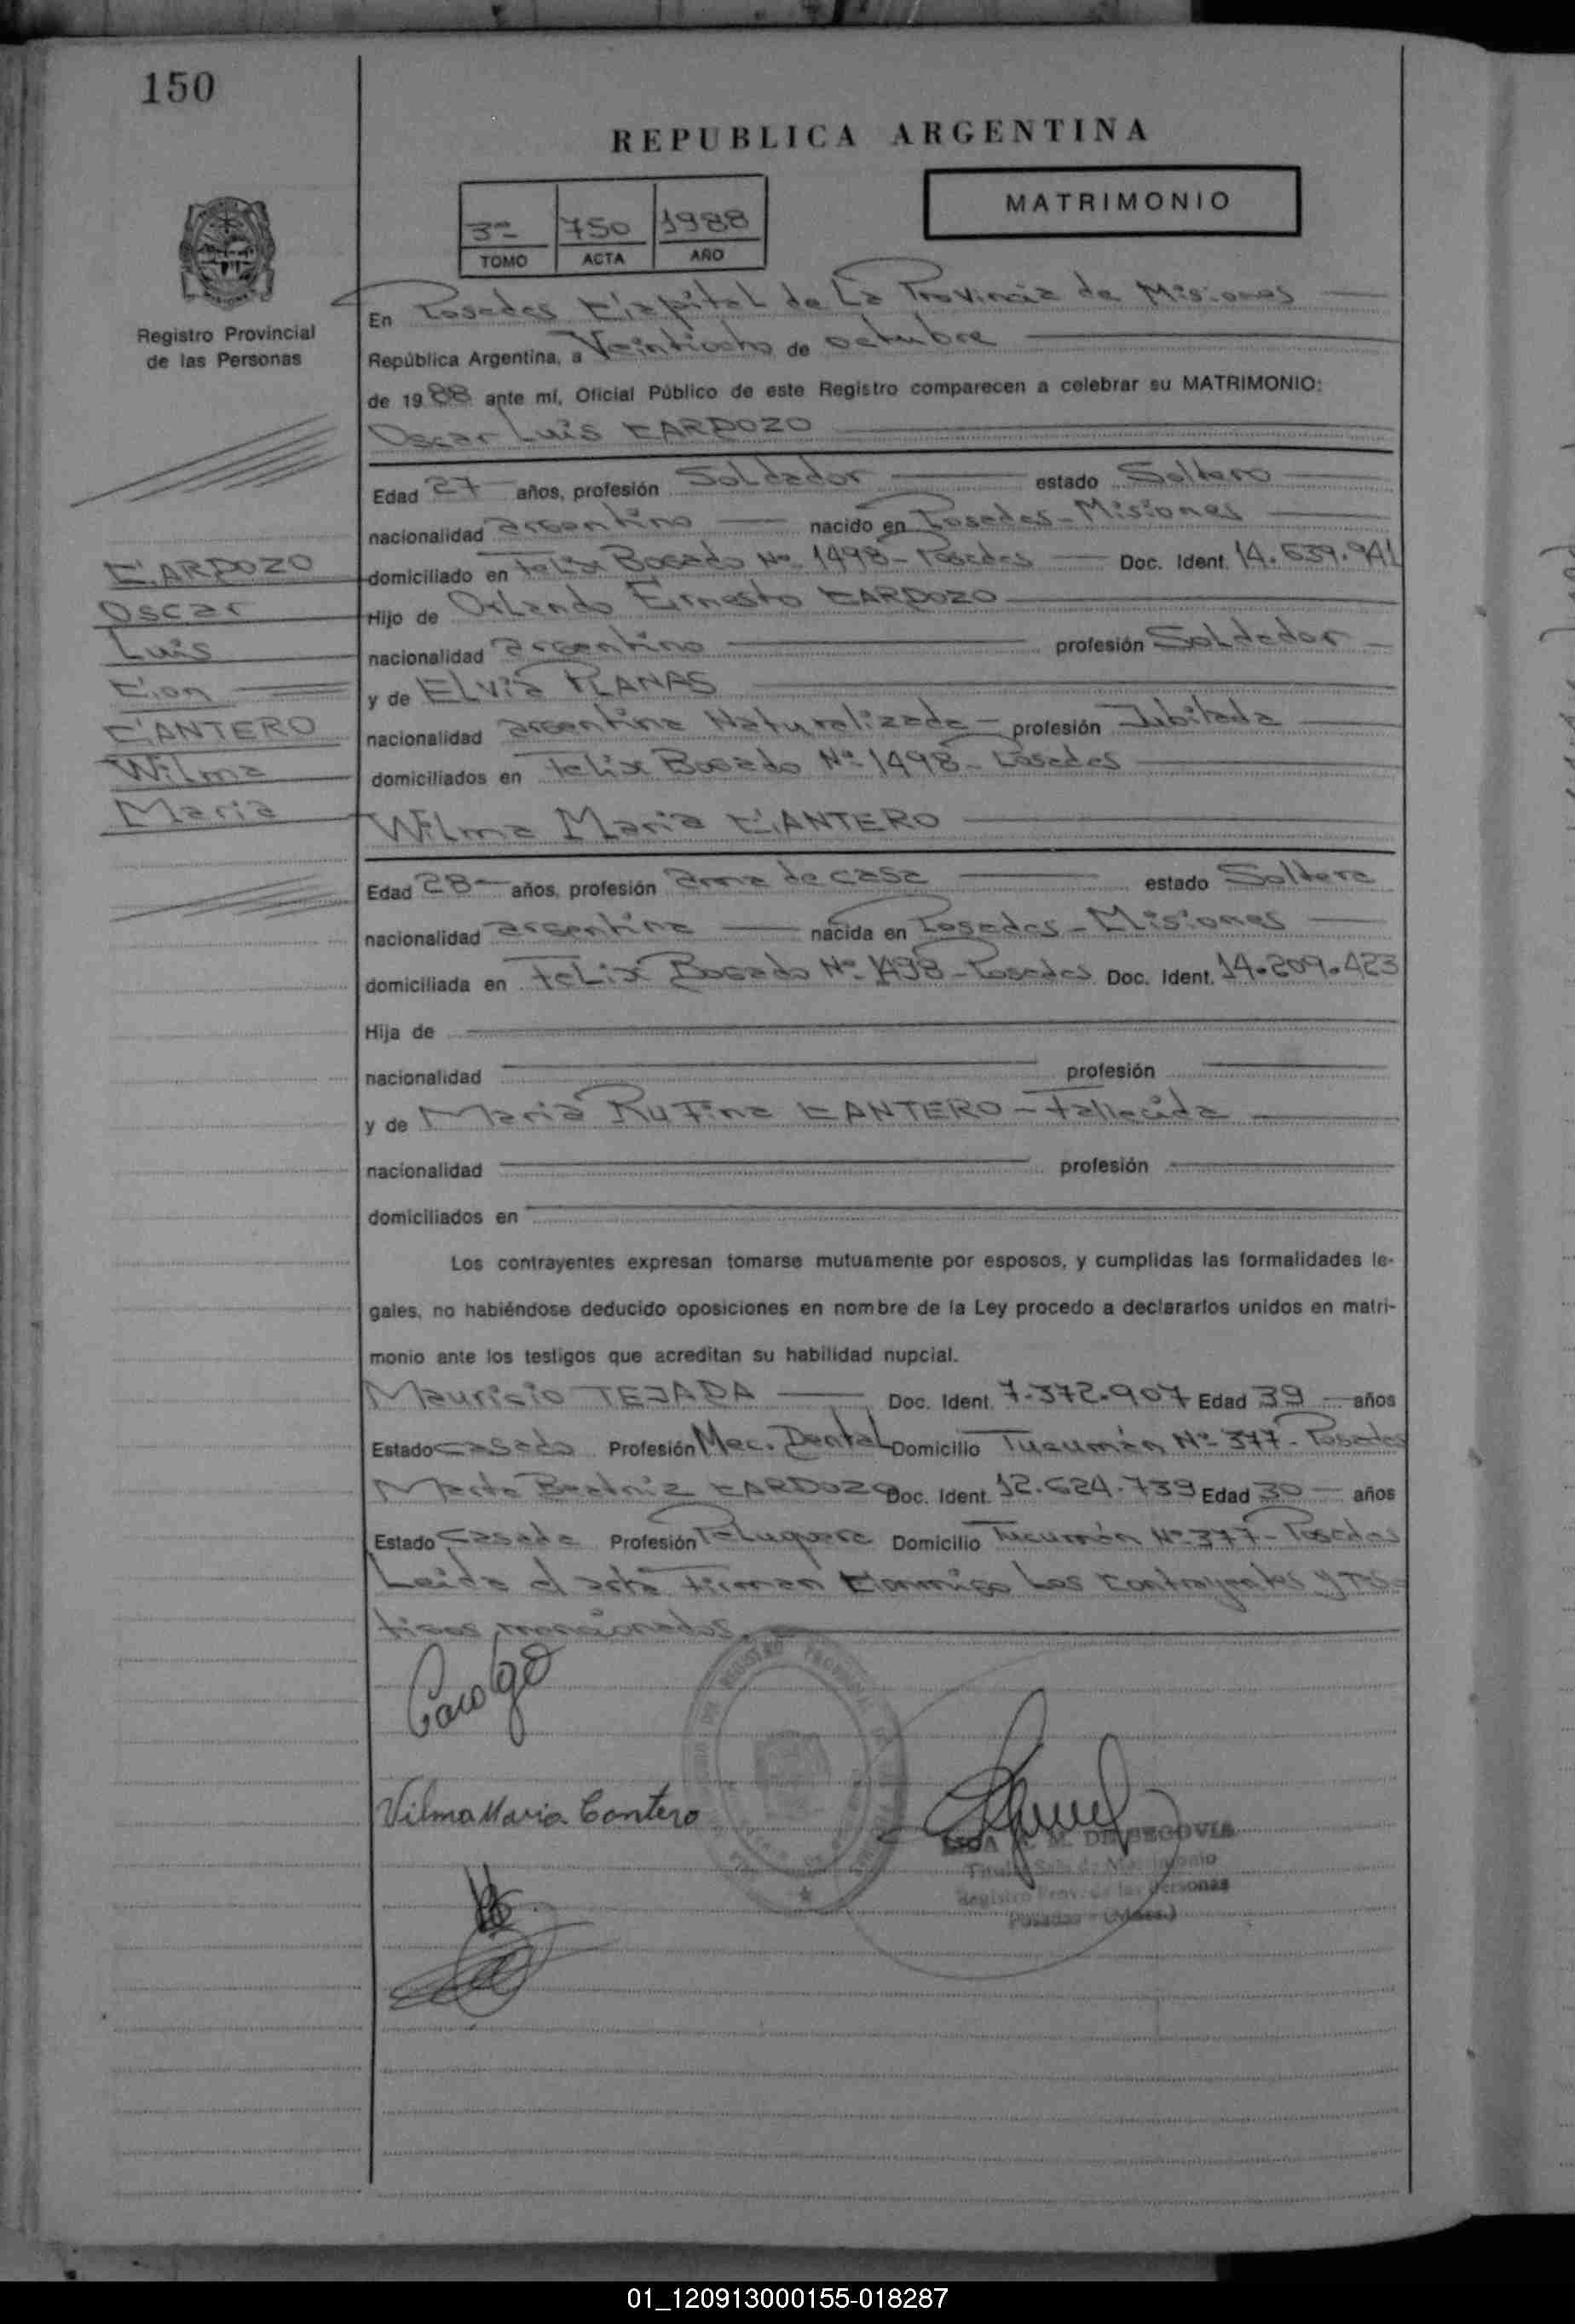 150
REPUBLICA ARGENTINA
MATRIMONIO
3º 750 1988
TOMO ACTA AÑO
Registro Provincial
de las Personas
En Posadas Capital de La Provincia de Misiones
República Argentina, a Veintiocho de octubre
de 1988 ante mí, Oficial Público de este Registro comparecen a celebrar su MATRIMONIO:
Oscar Luis CARDOZO
Edad 27 años, profesión Soldador estado Soltero
nacionalidad argentino nacido en Posadas - Misiones
domiciliado en Felix Bogado Nº 1498 - Posadas Doc. Ident. 14.639.941
Hijo de Orlando Ernesto CARDOZO
nacionalidad argentino profesión Soldador
y de ELvia PLANAS
nacionalidad argentina Naturalizada - profesión Jubilada
domiciliados en Felix Bogado Nº 1498 - Posadas
CARDOZO
Oscar
Luis
Con
CANTERO
Wilma
Maria
Wilma Maria CANTERO
Edad 28 años, profesión ama de casa estado Soltera
nacionalidad argentina nacida en Posadas - Misiones
domiciliada en Felix Bogado Nº 1498 - Posadas Doc. Ident. 14.209.423
Hija de
nacionalidad profesión
y de Maria Rufina CANTERO - Fallecida
nacionalidad profesión
domiciliados en
Los contrayentes expresan tomarse mutuamente por esposos, y cumplidas las formalidades le-
gales, no habiéndose deducido oposiciones en nombre de la Ley procedo a declararlos unidos en matri-
monio ante los testigos que acreditan su habilidad nupcial.
Mauricio TEJADA Doc. Ident. 7.372.907 Edad 39 años
Estado casado Profesión Mec. Dental Domicilio Tucumán Nº 377 - Posadas
Marta Beatriz CARDOZO Doc. Ident. 12.624.739 Edad 30 años
Estado Casada Profesión Peluquera Domicilio Tucumán Nº 377 - Posadas
Leida el acta Firman Conmigo Los Contrayentes y tes-
tigos mencionados.
Vilma Maria Cantero
DE SEGOVIA
Titular Sala de Matrimonio
Registro Prov. de las Personas
Posadas - (Mnes.)
01_120913000155-018287